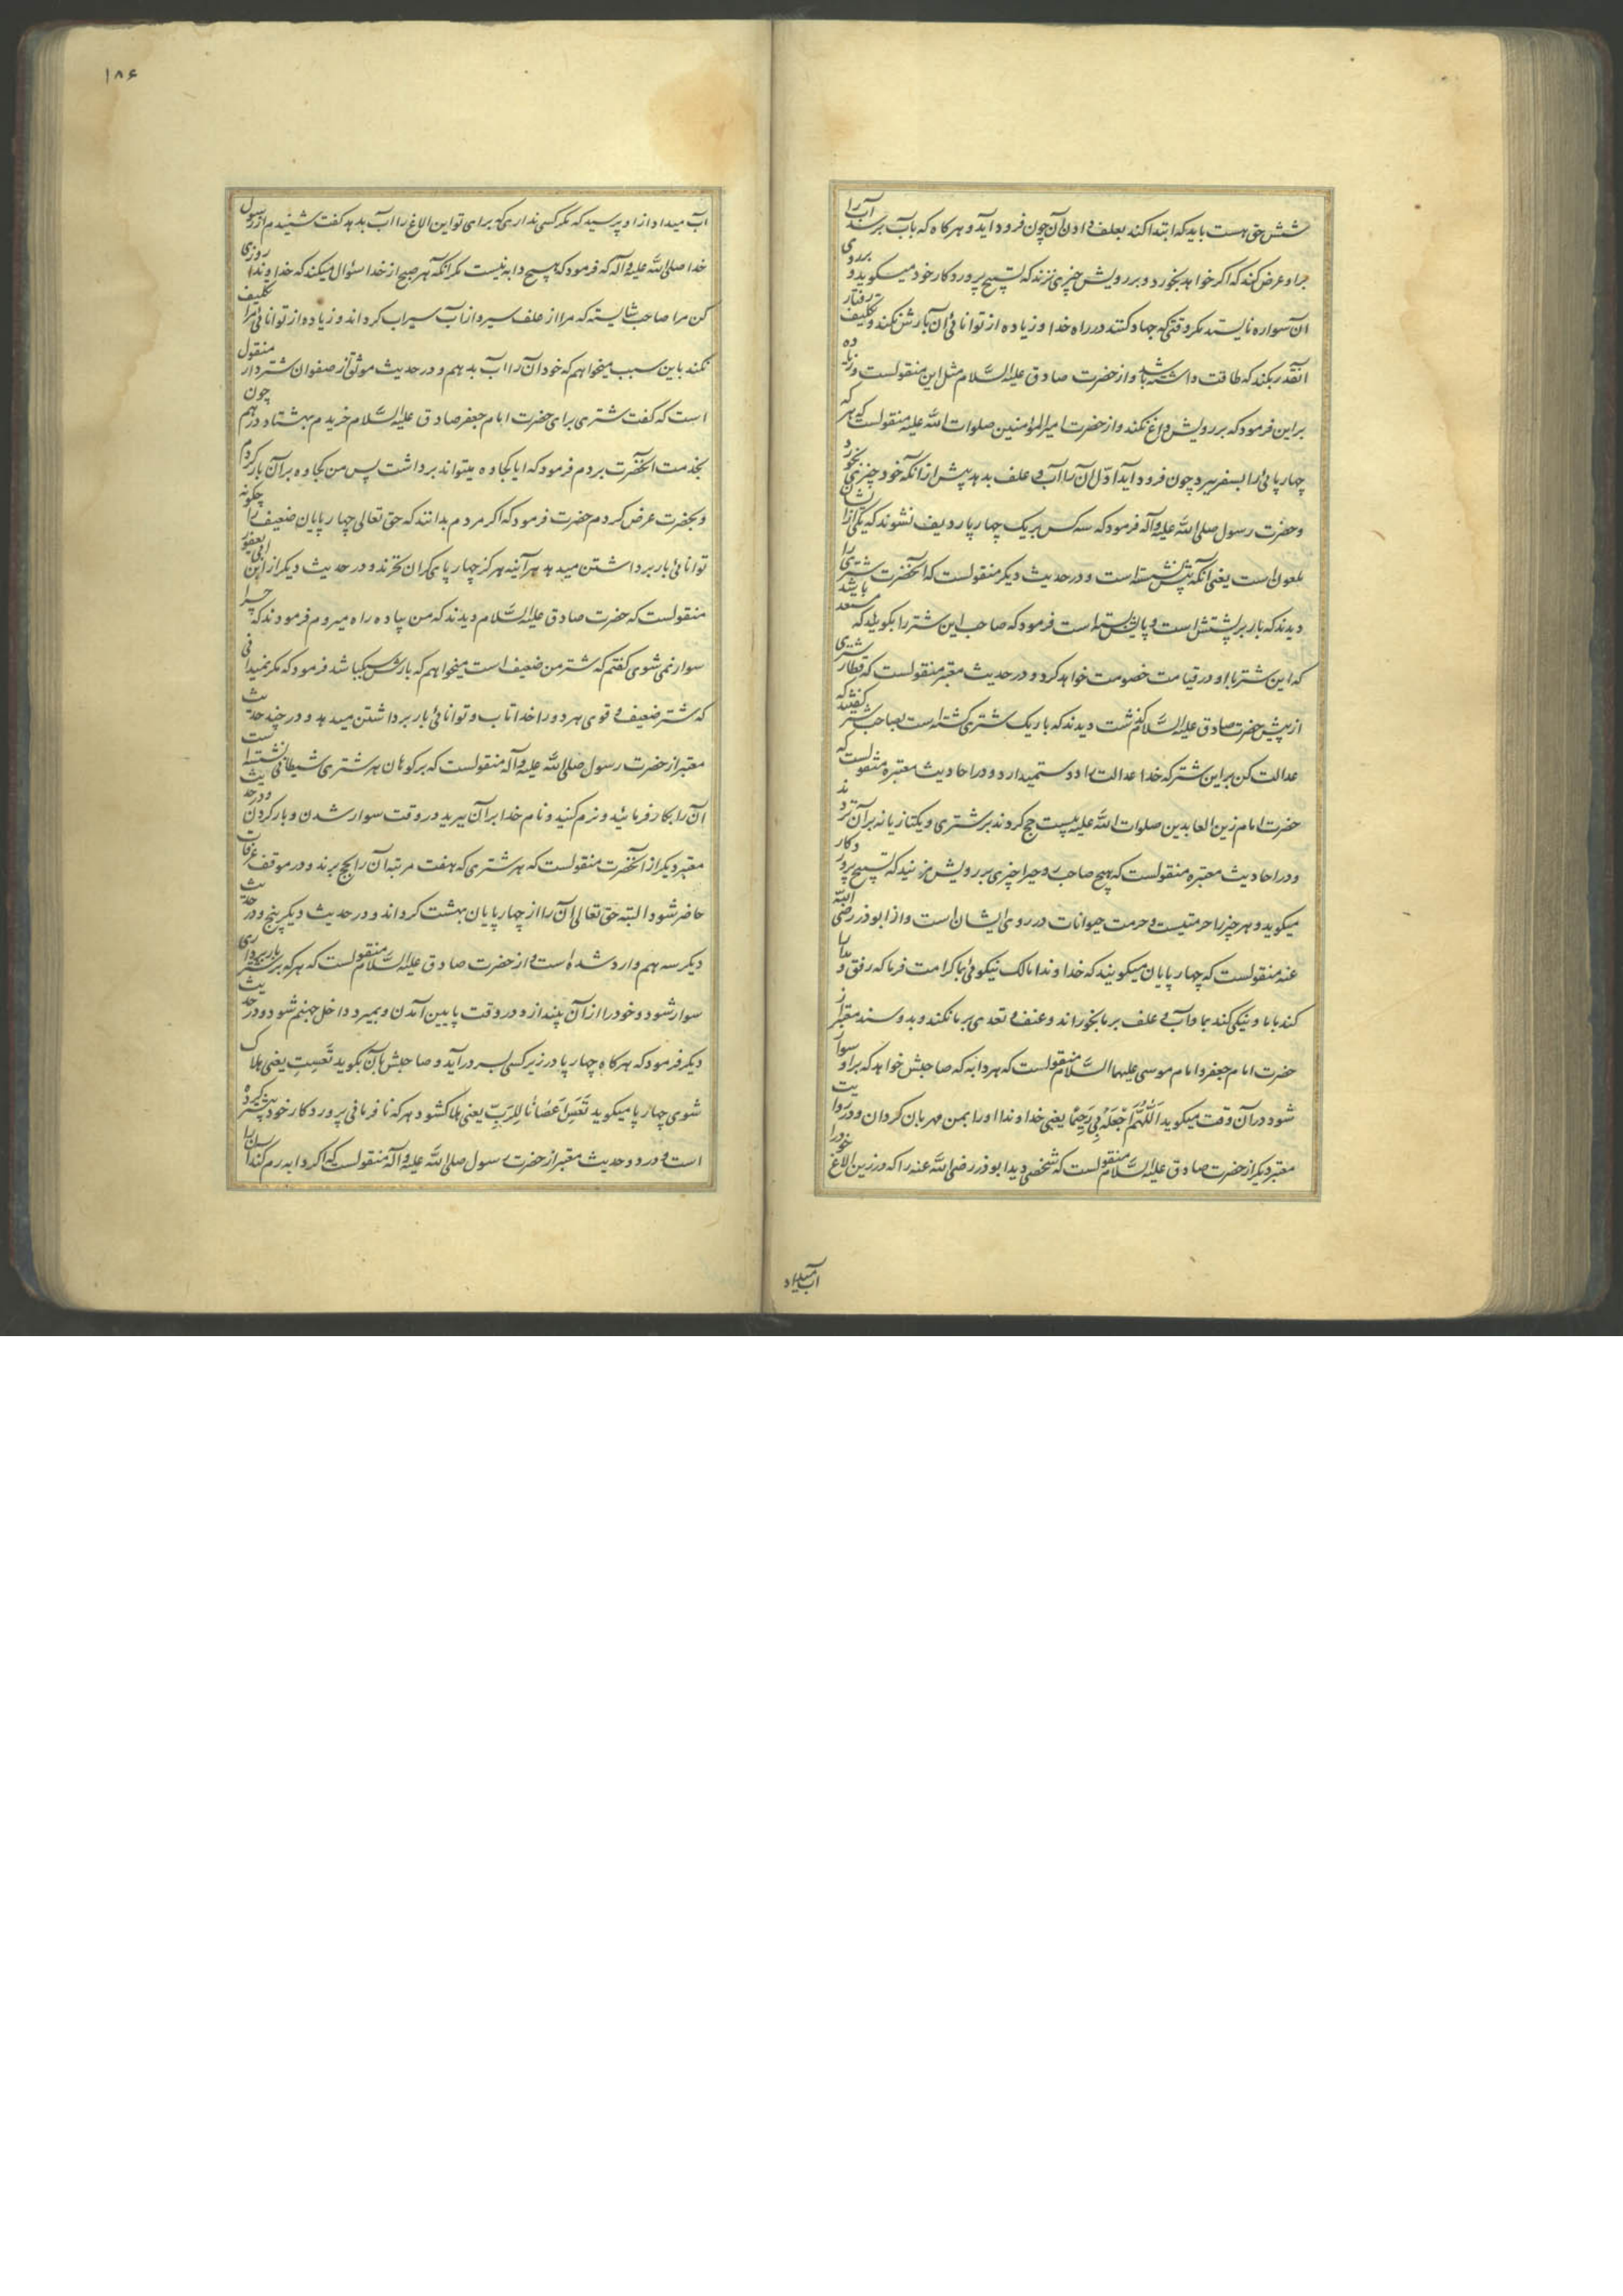 شش حق هست باید که ابتدا کند بعلف دادن آن چون فرود آید و هر کاه که بآب برسد آب را
براو عرض کند که اکر خواهد بخورد و بر رویش چیزی نزند که تسبیح پروردکار خود میکوید و بر روی
آن سواره نایستد مکر وقتی که جهاد کنند در راه خدا و زیاده از توانائی آن بارش نکند و تکلیف رفتار
آنقدر بکند که طاقت داشته باشد و از حضرت صادق علیه السّلام مثل این منقولست و زیاده
براین فرمود که بر رویش داغ نکند و از حضرت امیرالمؤمنین صلوات الله علیه منقولست که هر که
چهارپائی را بسفر ببرد چون فرود آید اوّل آن را آب و علف بدهد پیش از آنکه خود چیزی بخورد
و حضرت رسول صلی الله علیه وآله فرمود که سه کس بر یک چهارپا ردیف نشوند که یکی از ایشان
ملعون است یعنی آنکه پیش نشسته است و در حدیث دیکر منقولست که آنحضرت شتری را
دیدند که بار بر پشتش است و پایش بسته است فرمود که صاحب این شتر را بکوئید که مستعد باشد
که این شتر با او در قیامت خصومت خواهد کرد و در حدیث معتبر منقولست که قطار شتری
از پیش حضرت صادق علیه السّلام کذشت دیدند که بار یک شتری کشته است بصاحب شتر کفتند که
عدالت کن بر این شتر که خدا عدالت را دوست میدارد و در احادیث معتبره منقولست که
حضرت امام زین العابدین صلوات الله علیه بیست حج کردند بر شتری و یکتازیانه بر آن نزدند
و در احادیث معتبره منقولست که هیچ صاحب روحی را چیزی بر رویش مزنید که تسبیح پروردکار
میکوید و هر چیز را حرمتیست و حرمت حیوانات در روی ایشان است و از ابوذر رضی الله
عنه منقولست که چهارپایان میکویند که خداوندا مالک نیکوئی بما کرامت فرما که رفق و مدارا
کند با ما و نیکی کند بما و آب و علف بر ما بخوراند و عنف و تعدی بر ما نکند و بدو سند معتبر از
حضرت امام جعفر و امام موسی علیهما السّلام منقولست که هر دابه که صاحبش خواهد که بر او سوار
شود در آن وقت میکوید اَللّٰهُمَّ اجْعَلْهُ بِی رَحِیْمًا یعنی خداوندا او را بمن مهربان کردان و در روایت
معتبر دیکر از حضرت صادق علیه السّلام منقولست که شخصی دید ابوذر رضی الله عنه را که در زین الاغ خود را
آب میداد
۱۸۶
آب میداد از او پرسید که مکر کسی نداری که برای تو این الاغ را آب بدهد کفت شنیدم از رسول
خدا صلی الله علیه وآله که فرمود که هیچ دابه نیست مکر آنکه هر صبح از خدا سؤال میکند که خداوندا روزی
کن مرا صاحب شایسته که مرا از علف سیر و از آب سیراب کرداند و زیاده از توانائی مرا تکلیف
نکند باین سبب میخواهم که خود آن را آب بدهم و در حدیث موثق از صفوان شتردار منقول
است که کفت شتری برای حضرت امام جعفر صادق علیه السّلام خریدم بهشتاد درهم چون
بخدمت آنحضرت بردم فرمود که ایا کجاوه میتواند برداشت پس من کجاوه بر آن بار کردم
و بحضرت عرض کردم حضرت فرمود که اکر مردم بدانند که حق تعالی چهارپایان ضعیف را چکونه
توانائی بار برداشتن میدهد هر آینه هرکز چهارپای کران نخرند و در حدیث دیکر از ابن ابی یعفور
منقولست که حضرت صادق علیه السّلام دیدند که من پیاده راه میروم فرمودند که چرا
سوار نمی شوی کفتم که شتر من ضعیف است میخواهم که بارش سبک باشد فرمود که مکر نمیدانی
که شتر ضعیف و قوی هر دو را خدا تاب و توانائی بار برداشتن میدهد و در چند حدیث
معتبر از حضرت رسول صلی الله علیه وآله منقولست که بر کوهان هر شتری شیطانی نشسته است
آن را بکار فرمائید و نرم کنید و نام خدا بر آن ببرید در وقت سوار شدن و بار کردن و در حدیث
معتبر دیکر از آنحضرت منقولست که هر شتری که هفت مرتبه آن را بحج برند و در موقف عرفات
حاضر شود البته حق تعالی آن را از چهارپایان بهشت کرداند و در حدیث دیکر پنج و در حدیث
دیکر سه هم وارد شده است و از حضرت صادق علیه السّلام منقولست که هر که بر شتر بار برداری
سوار شود و خود را از آن بیندازد در وقت پایین آمدن و بمیرد داخل جهنم شود و در حدیث
دیکر فرمود که هر کاه چهارپا در زیر کسی بسر درآید و صاحبش بآن بکوید تَعَسْتِ یعنی هلاک
شوی چهارپا میکوید تَعَسَ اَعْصٰانٰا لِلرَّبِّ یعنی هلاک شود هر که نافرمانی پروردکار خود بیشتر کرده
است و در دو حدیث معتبر از حضرت رسول صلی الله علیه وآله منقولست که اکر دابه رم کند آن را